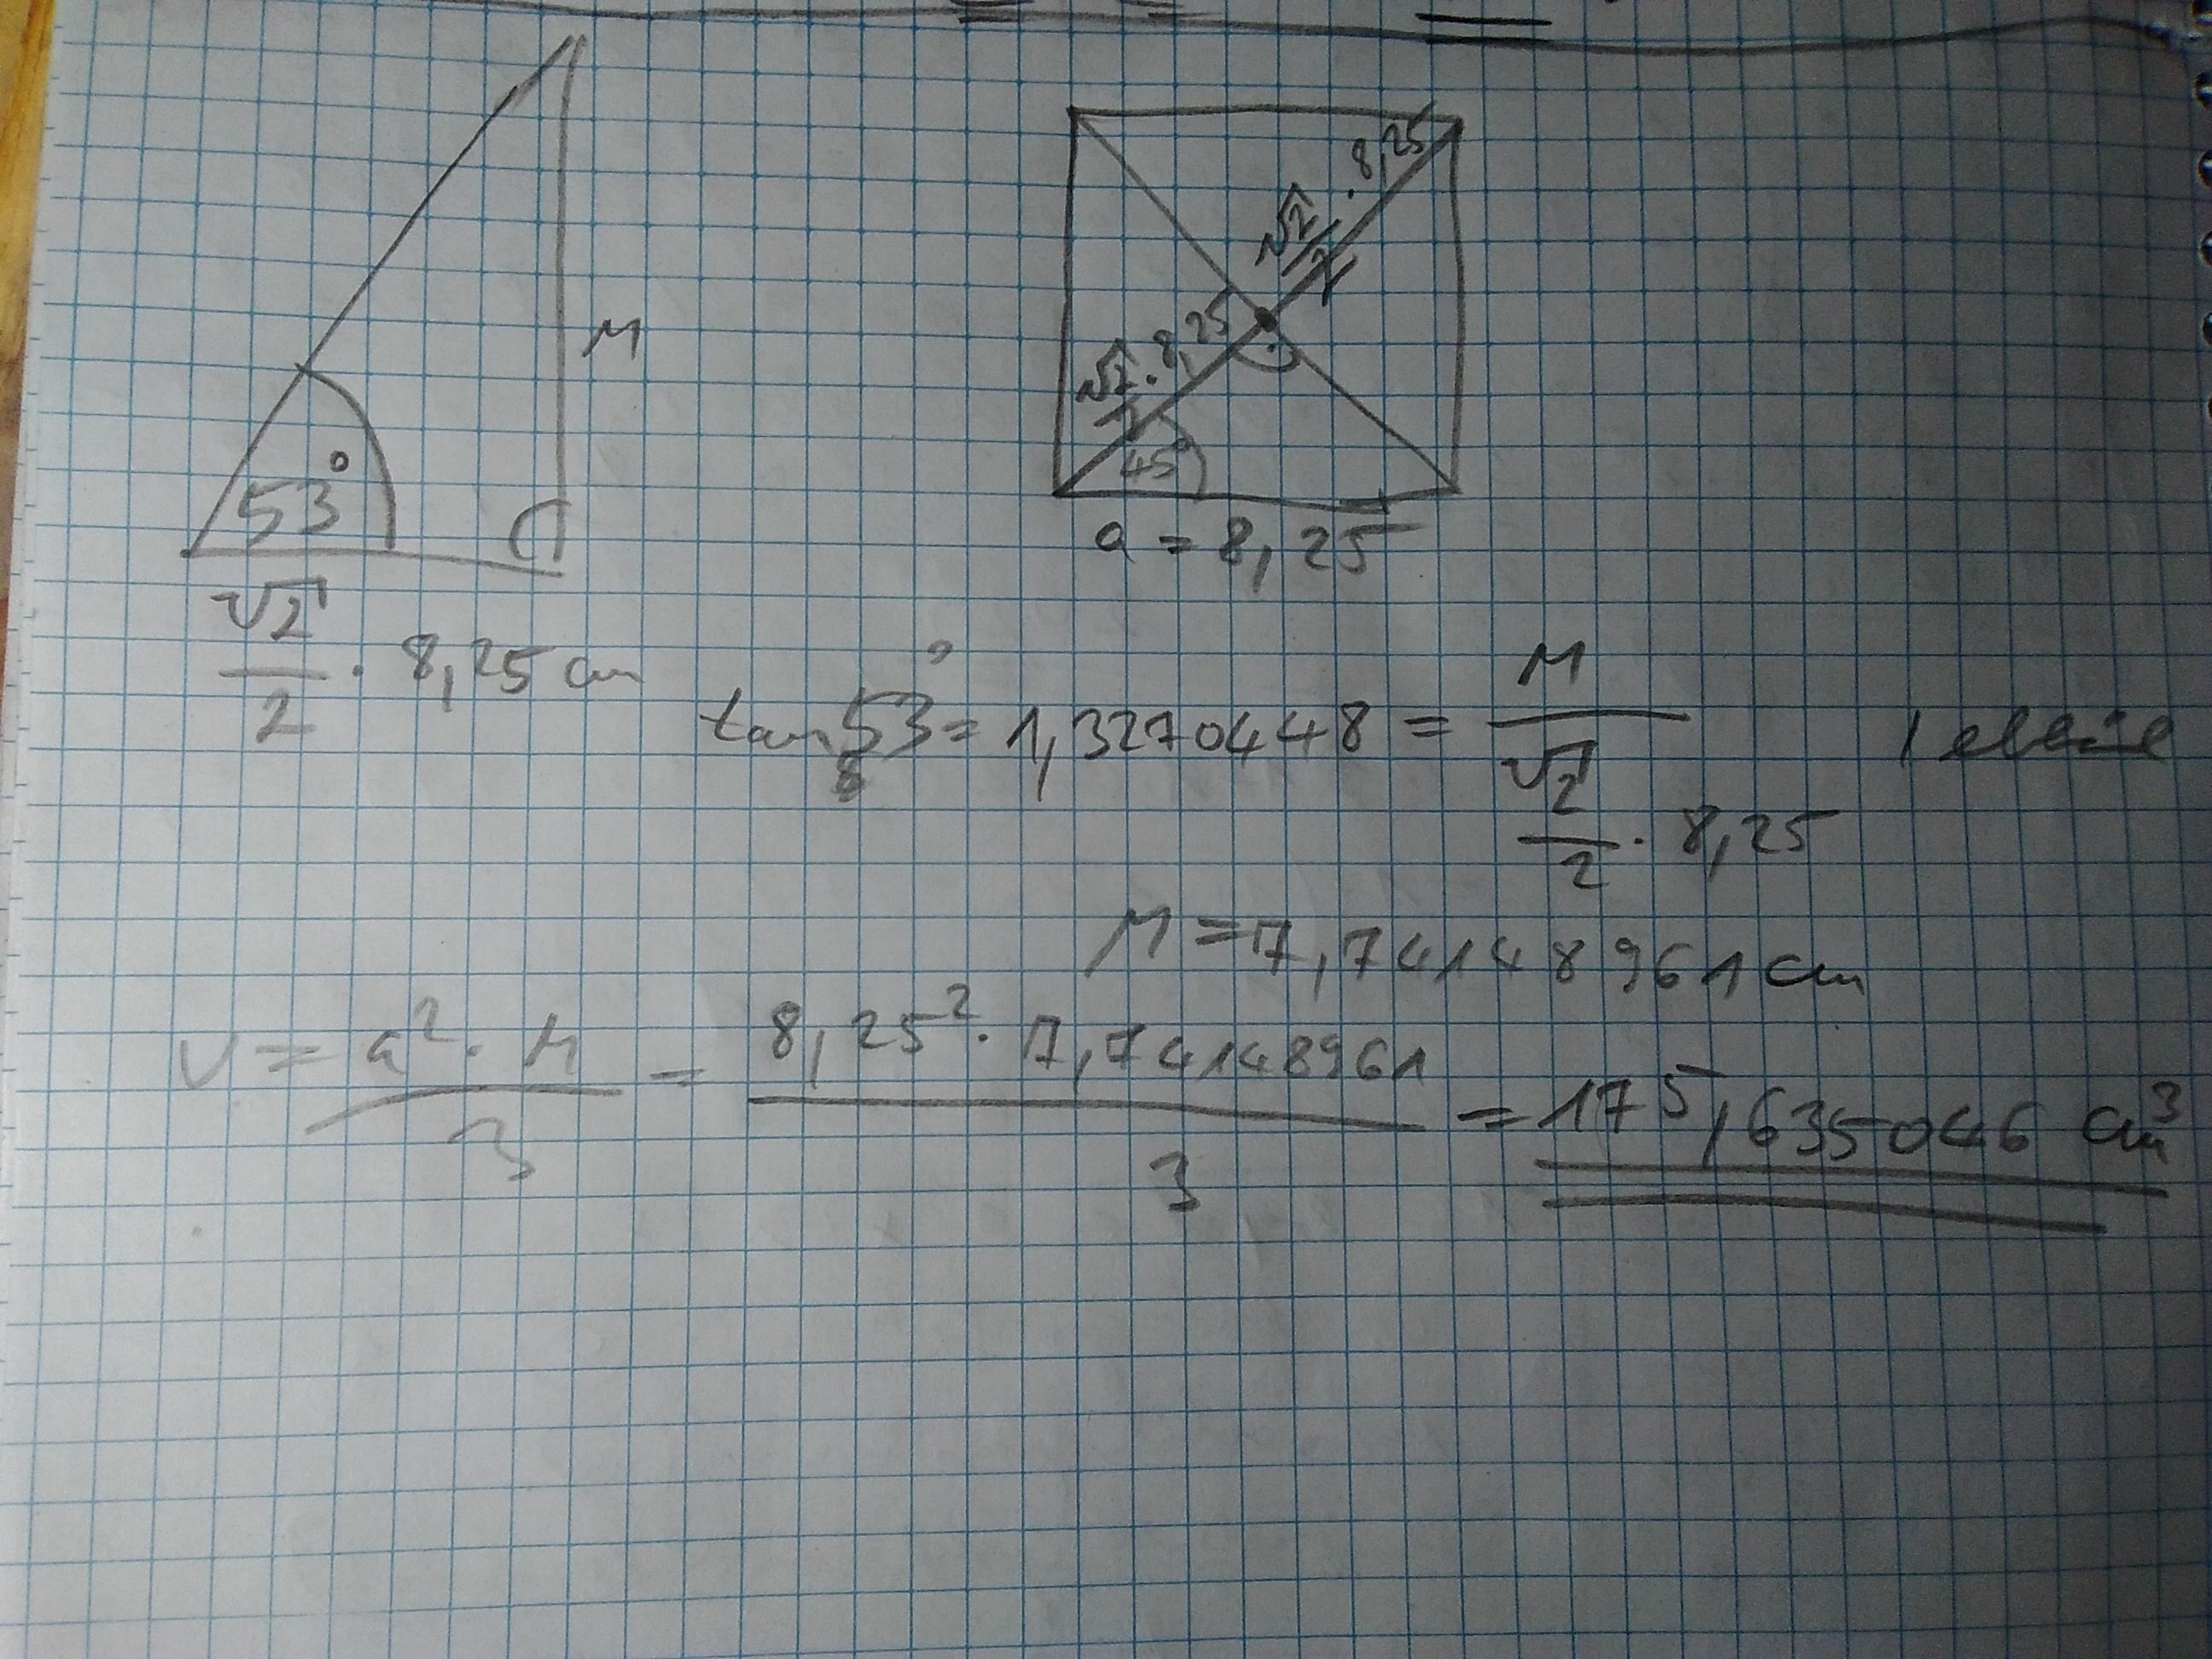 M
53°
√2/2 · 8,25 cm
√2/2 · 8,25
√2/2 · 8,25
45°
a = 8,25
tan 53° = 1,3270448 = M / (√2/2 · 8,25)
M = 7,74148961 cm
V = a² · M / 3 = 8,25² · 7,74148961 / 3 = 175,635046 cm³